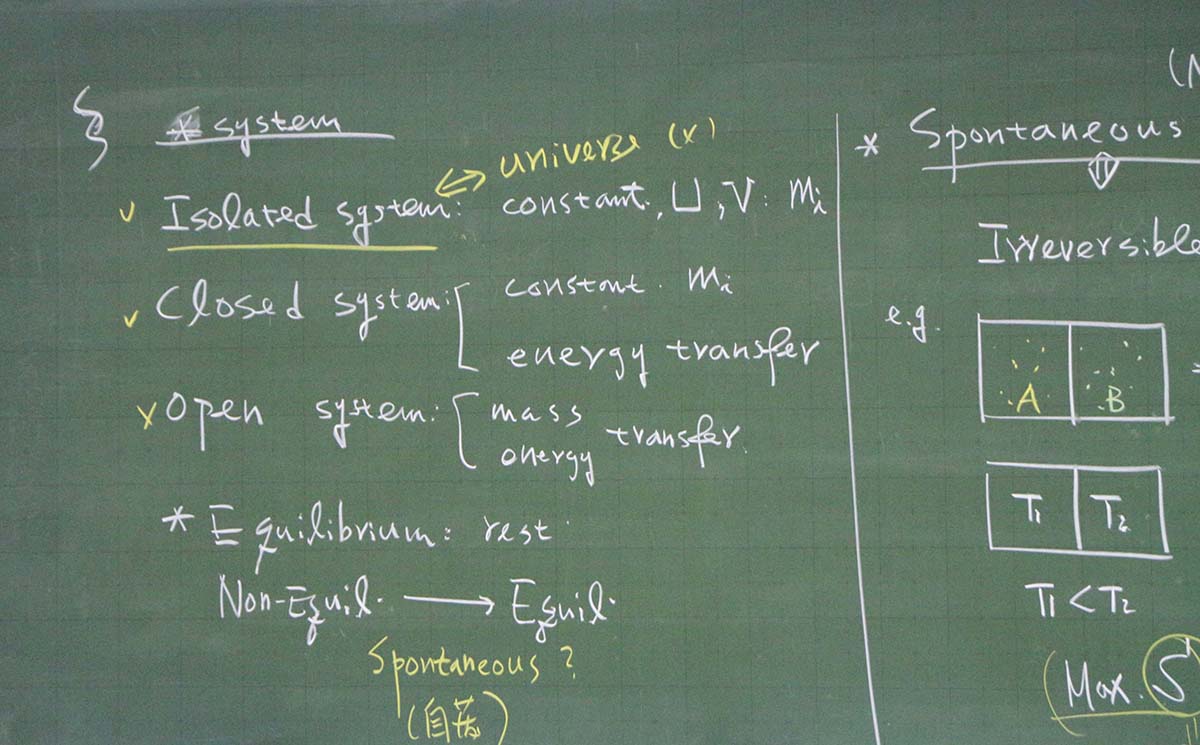 * system
universe (x)
✓ Isolated system: constant, U, V. mi
✓ Closed system: constant. mi
energy transfer
x Open system: mass
energy transfer.
* Equilibrium: rest.
Non-Equil. → Equil.
Spontaneous?
(自发)
(N
* Spontaneous
Irreversible
e.g.
A B
T1 T2
T1 < T2
(Max. S